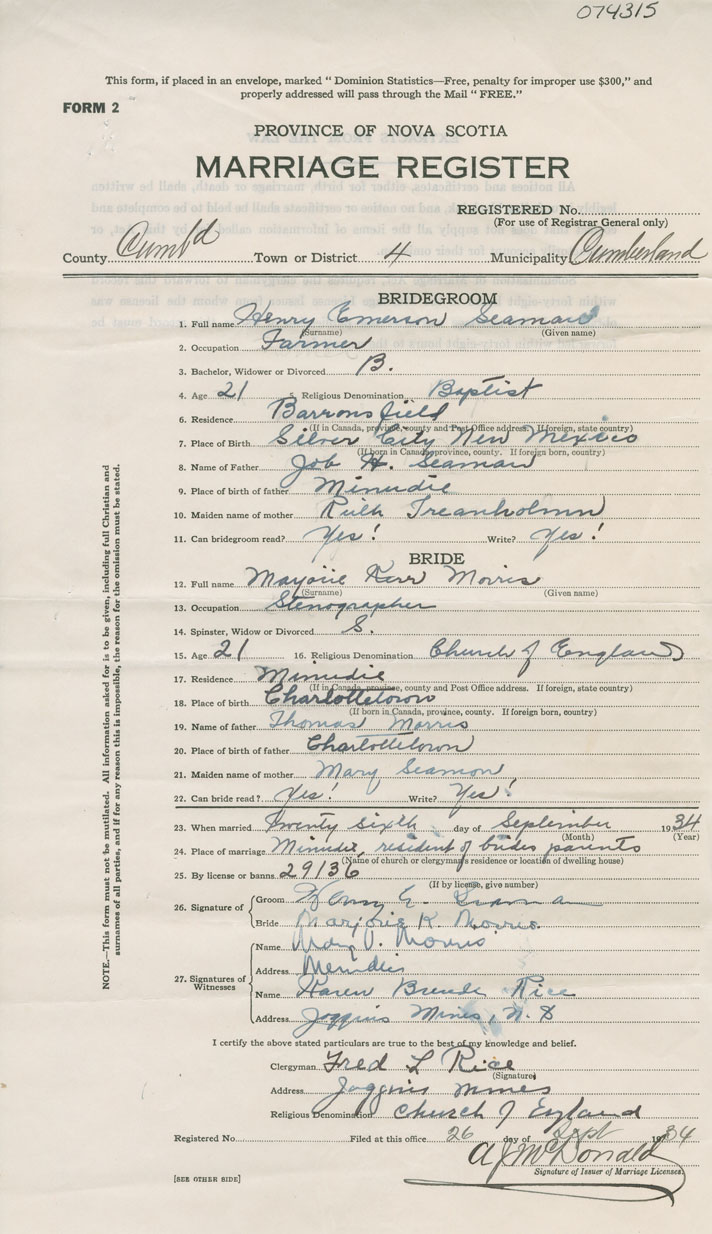 074315
This form, if placed in an envelope, marked " Dominion Statistics—Free, penalty for improper use $300," and
properly addressed will pass through the Mail " FREE."
FORM 2
PROVINCE OF NOVA SCOTIA
MARRIAGE REGISTER
REGISTERED No.
(For use of Registrar General only)
County Cumb'd Town or District 4 Municipality Cumberland
BRIDEGROOM
1. Full name Henry Emerson Seaman
(Surname) (Given name)
2. Occupation Farmer
3. Bachelor, Widower or Divorced B.
4. Age 21 5. Religious Denomination Baptist
6. Residence Barronsfield
(If in Canada, province, county and Post Office address. If foreign, state country)
7. Place of Birth Silver City New Mexico
(If born in Canada, province, county. If foreign born, country)
8. Name of Father Job H. Seaman
9. Place of birth of father Minudie
10. Maiden name of mother Ruth Treanholmn
11. Can bridegroom read? Yes! Write? Yes!
BRIDE
12. Full name Marjorie Kerr Morris
(Surname) (Given name)
13. Occupation Stenographer
14. Spinster, Widow or Divorced S.
15. Age 21 16. Religious Denomination Church of England
17. Residence Minudie
(If in Canada, province, county and Post Office address. If foreign, state country)
18. Place of birth Charlottetown
(If born in Canada, province, county. If foreign born, country)
19. Name of father Thomas Morris
20. Place of birth of father Charlottetown
21. Maiden name of mother Mary Seamon
22. Can bride read? Yes! Write? Yes!
23. When married Twenty sixth day of September 1934
(Month) (Year)
24. Place of marriage Minudie, resident of brides parents
(Name of church or clergyman's residence or location of dwelling house)
25. By license or banns 29136
(If by license, give number)
26. Signature of Groom Henry E. Seaman
Bride Marjorie K. Morris
27. Signatures of Witnesses Name Morris
Address Menudie
Name Karen Brende Rice
Address Joggins Mines, N. S
I certify the above stated particulars are true to the best of my knowledge and belief.
Clergyman Fred L Rice
(Signature)
Address Joggins Mines
Religious Denomination Church of England
Registered No. Filed at this office 26 day of Sept 1934
A J McDonald
Signature of Issuer of Marriage Licenses.
[SEE OTHER SIDE]
NOTE.—This form must not be mutilated. All information asked for is to be given, including full Christian and
surnames of all parties, and if for any reason this is impossible, the reason for the omission must be stated.